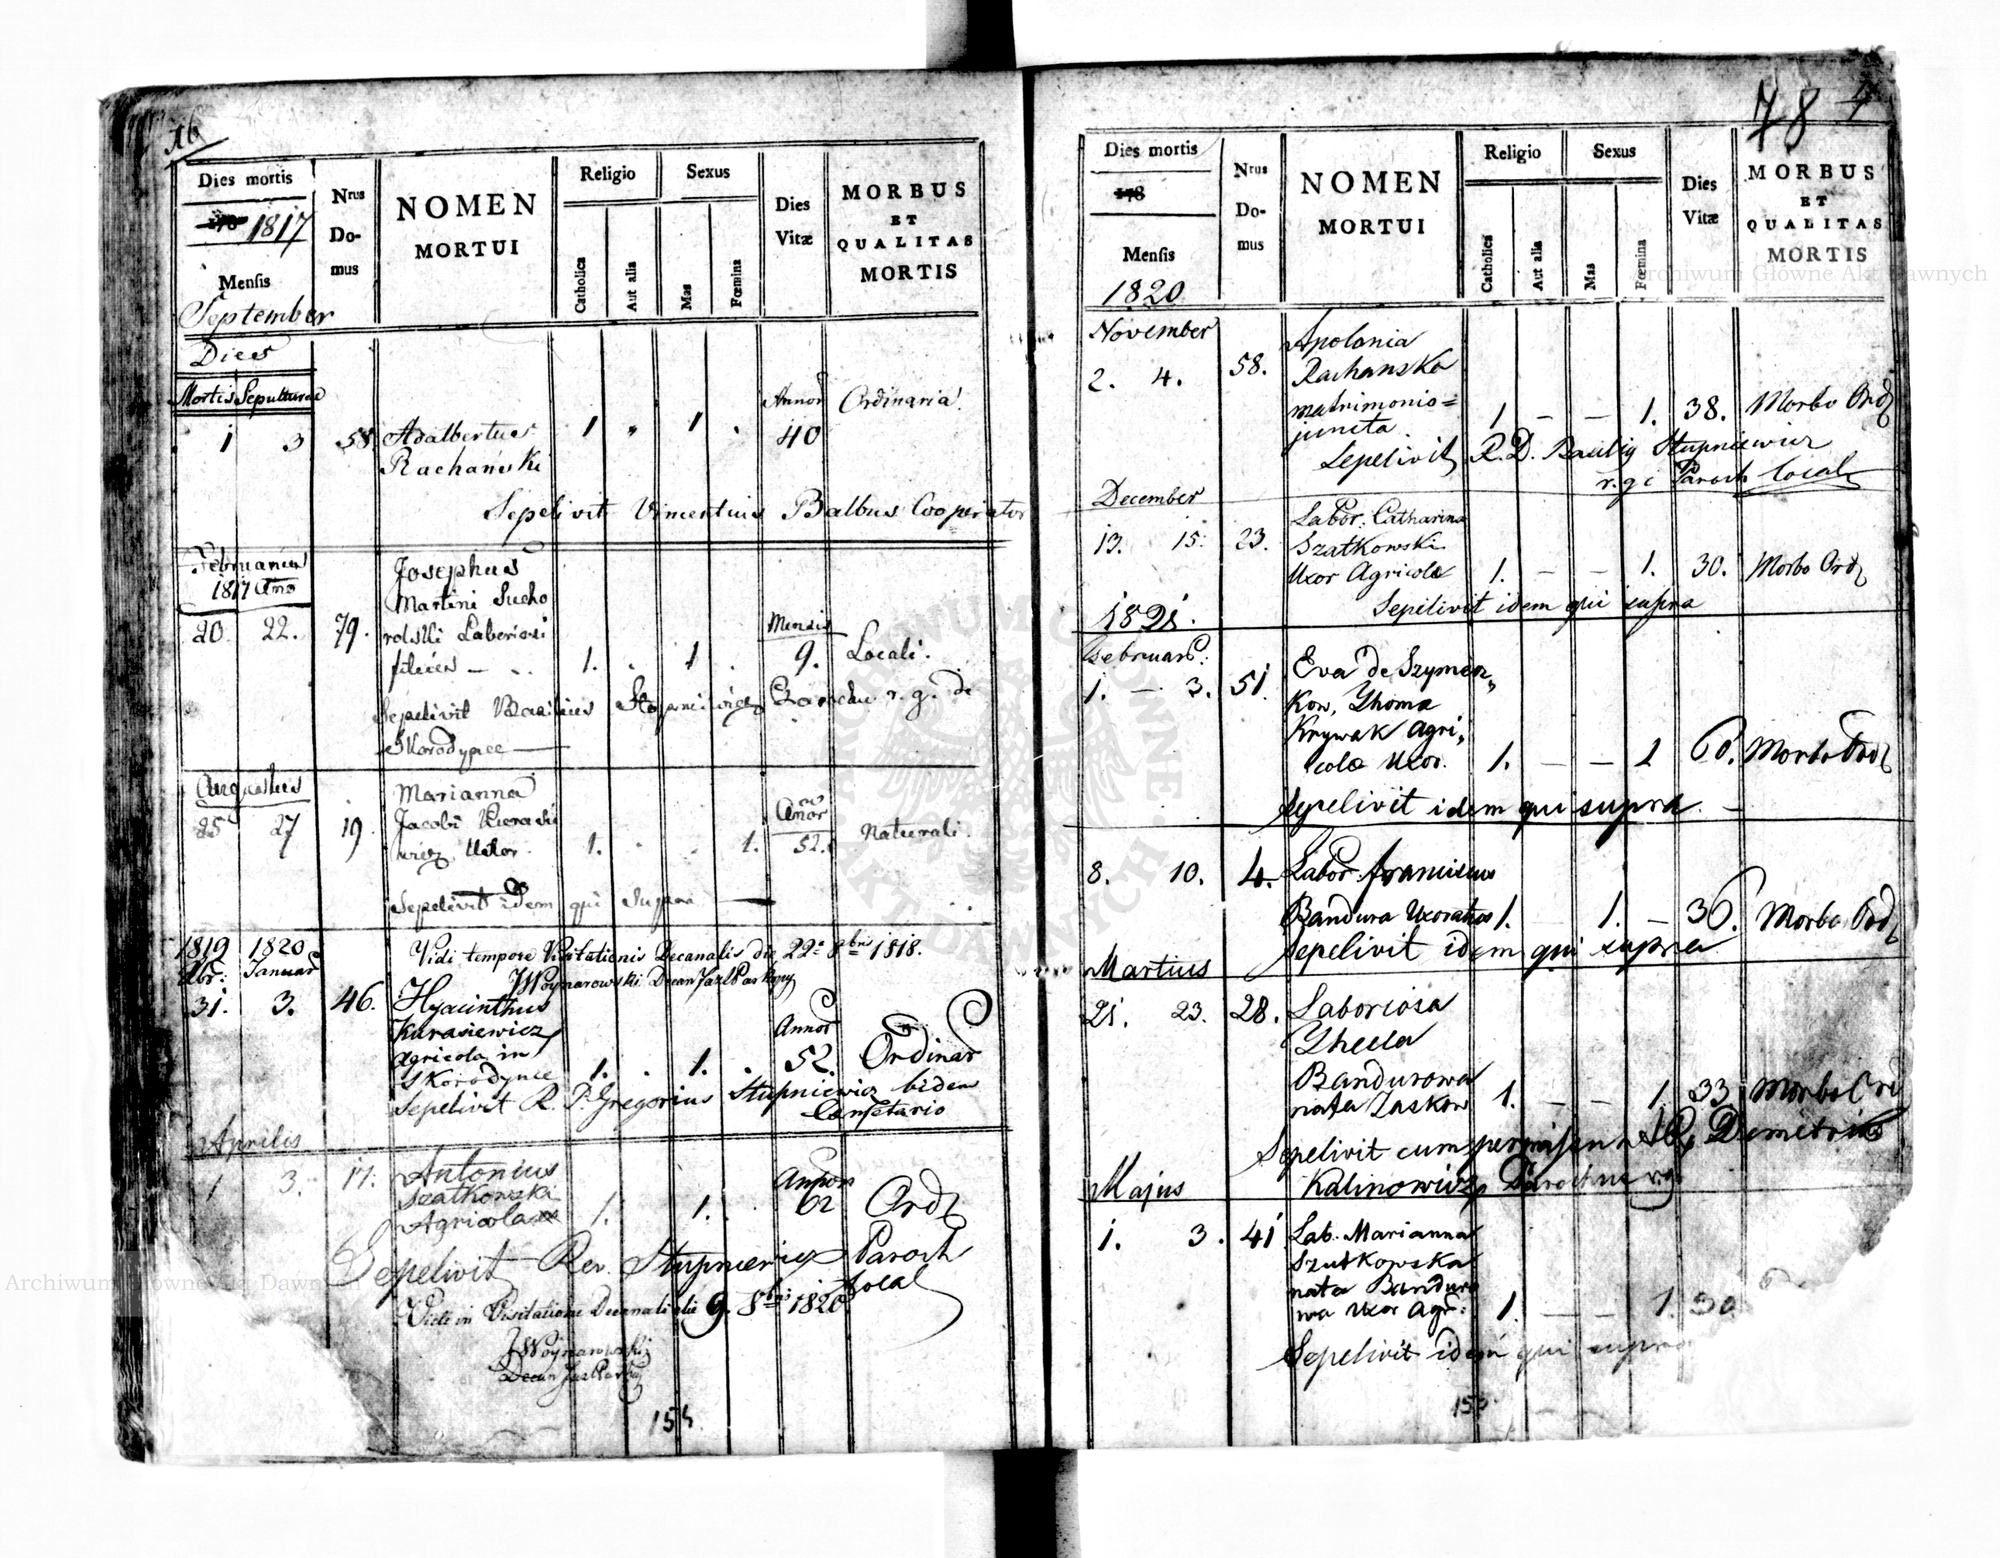 16
Dies mortis
178 1817
Mensis
September
Nrus
Do-
mus
NOMEN
MORTUI
Religio
Catholica
Aut alia
Sexus
Mas
Fœmina
Dies
Vitæ
MORBUS
ET
QUALITAS
MORTIS
Dies
Mortis Sepulturae
1 3 58 Adalbertus 1 " 1 . Annor 40 Ordinaria.
Rachański
Sepelivit Vincentius Balbus Cooperator
Februarius
1817 Ano
20. 22. 79. Josephus
Martini Sucho
rolski Laboriosi
filius — . . 1. . 1 . Mensis 9. Locali.
Sepelivit Basilius Stupniewicz Parochu r. g. de
Skorodynce —
Augustus
25 27 19. Marianna
Jacobi
wicz Uxor. 1. . . 1. Anor 52. Naturali.
Sepelivit idem qui Supra —
1819 1820
Xbr: Januar
Vidi tempore Visitationis Decanalis die 22a 8bris 1818.
JWoynarowski Decan
31. 3. 46. Hyacinthus
Karasiewicz
Agricola in
Skorodynce 1. . 1. . Annor 52. Ordinar
Sepelivit R. P. Gregorius Stupniewicz
Aprilis
1 3. 17. Antonius
Szatkowski
Agricola 1. 1. Annor 62 Ord
Sepelivit Rev. Stupniewicz Paroch
Local
Vidi in Visitatione Decanali die 9. 8bris 1820
JWoynarowski
Decan
154
78
Dies mortis
178
Mensis
1820
Nrus
Do-
mus
NOMEN
MORTUI
Religio
Catholica
Aut alia
Sexus
Mas
Fœmina
Dies
Vitæ
MORBUS
ET
QUALITAS
MORTIS
November
2. 4. 58. Apolonia
Rachanska
matrimonio=
juncta 1 — — 1. 38. Morbo Ord
Sepelivit R. D. Basilig Stupniewicz
r. g c Paroch Local
December
13. 15. 23. Labor. Catharina
Szatkowski
Uxor Agricola 1. — — 1. 30. Morbo Ord
Sepilivit idem qui supra
1821.
Februar:
1. — 3. 51. Eva de Szymcz„
kow, Thoma
Krywak Agri„
cola Uxor. 1. — — 1 60. Morbo Ord
Sepelivit idem qui supra. —
8. 10. 4. Labor. Franciscus
Bandura Uxoratus 1. — 1. — 36. Morbo Ord
Sepelivit idem qui supra
Martius
21. 23. 28. Laboriosa
Thecla
Bandurowa
nata Zaskow 1. — — 1. 33. Morbo Ord
Sepelivit cum Demetrius
Kalinowicz Parochus r. g.
Majus
1. 3. 41 Lab. Marianna
Szutkowska
nata Banduro
wa Uxor Agr: 1. — — 1. 30
Sepelivit idem qui supra
Archiwum Główne Akt Dawnych
Archiwum Główne Akt Dawnych
ARCHIWUM GŁÓWNE AKT DAWNYCH